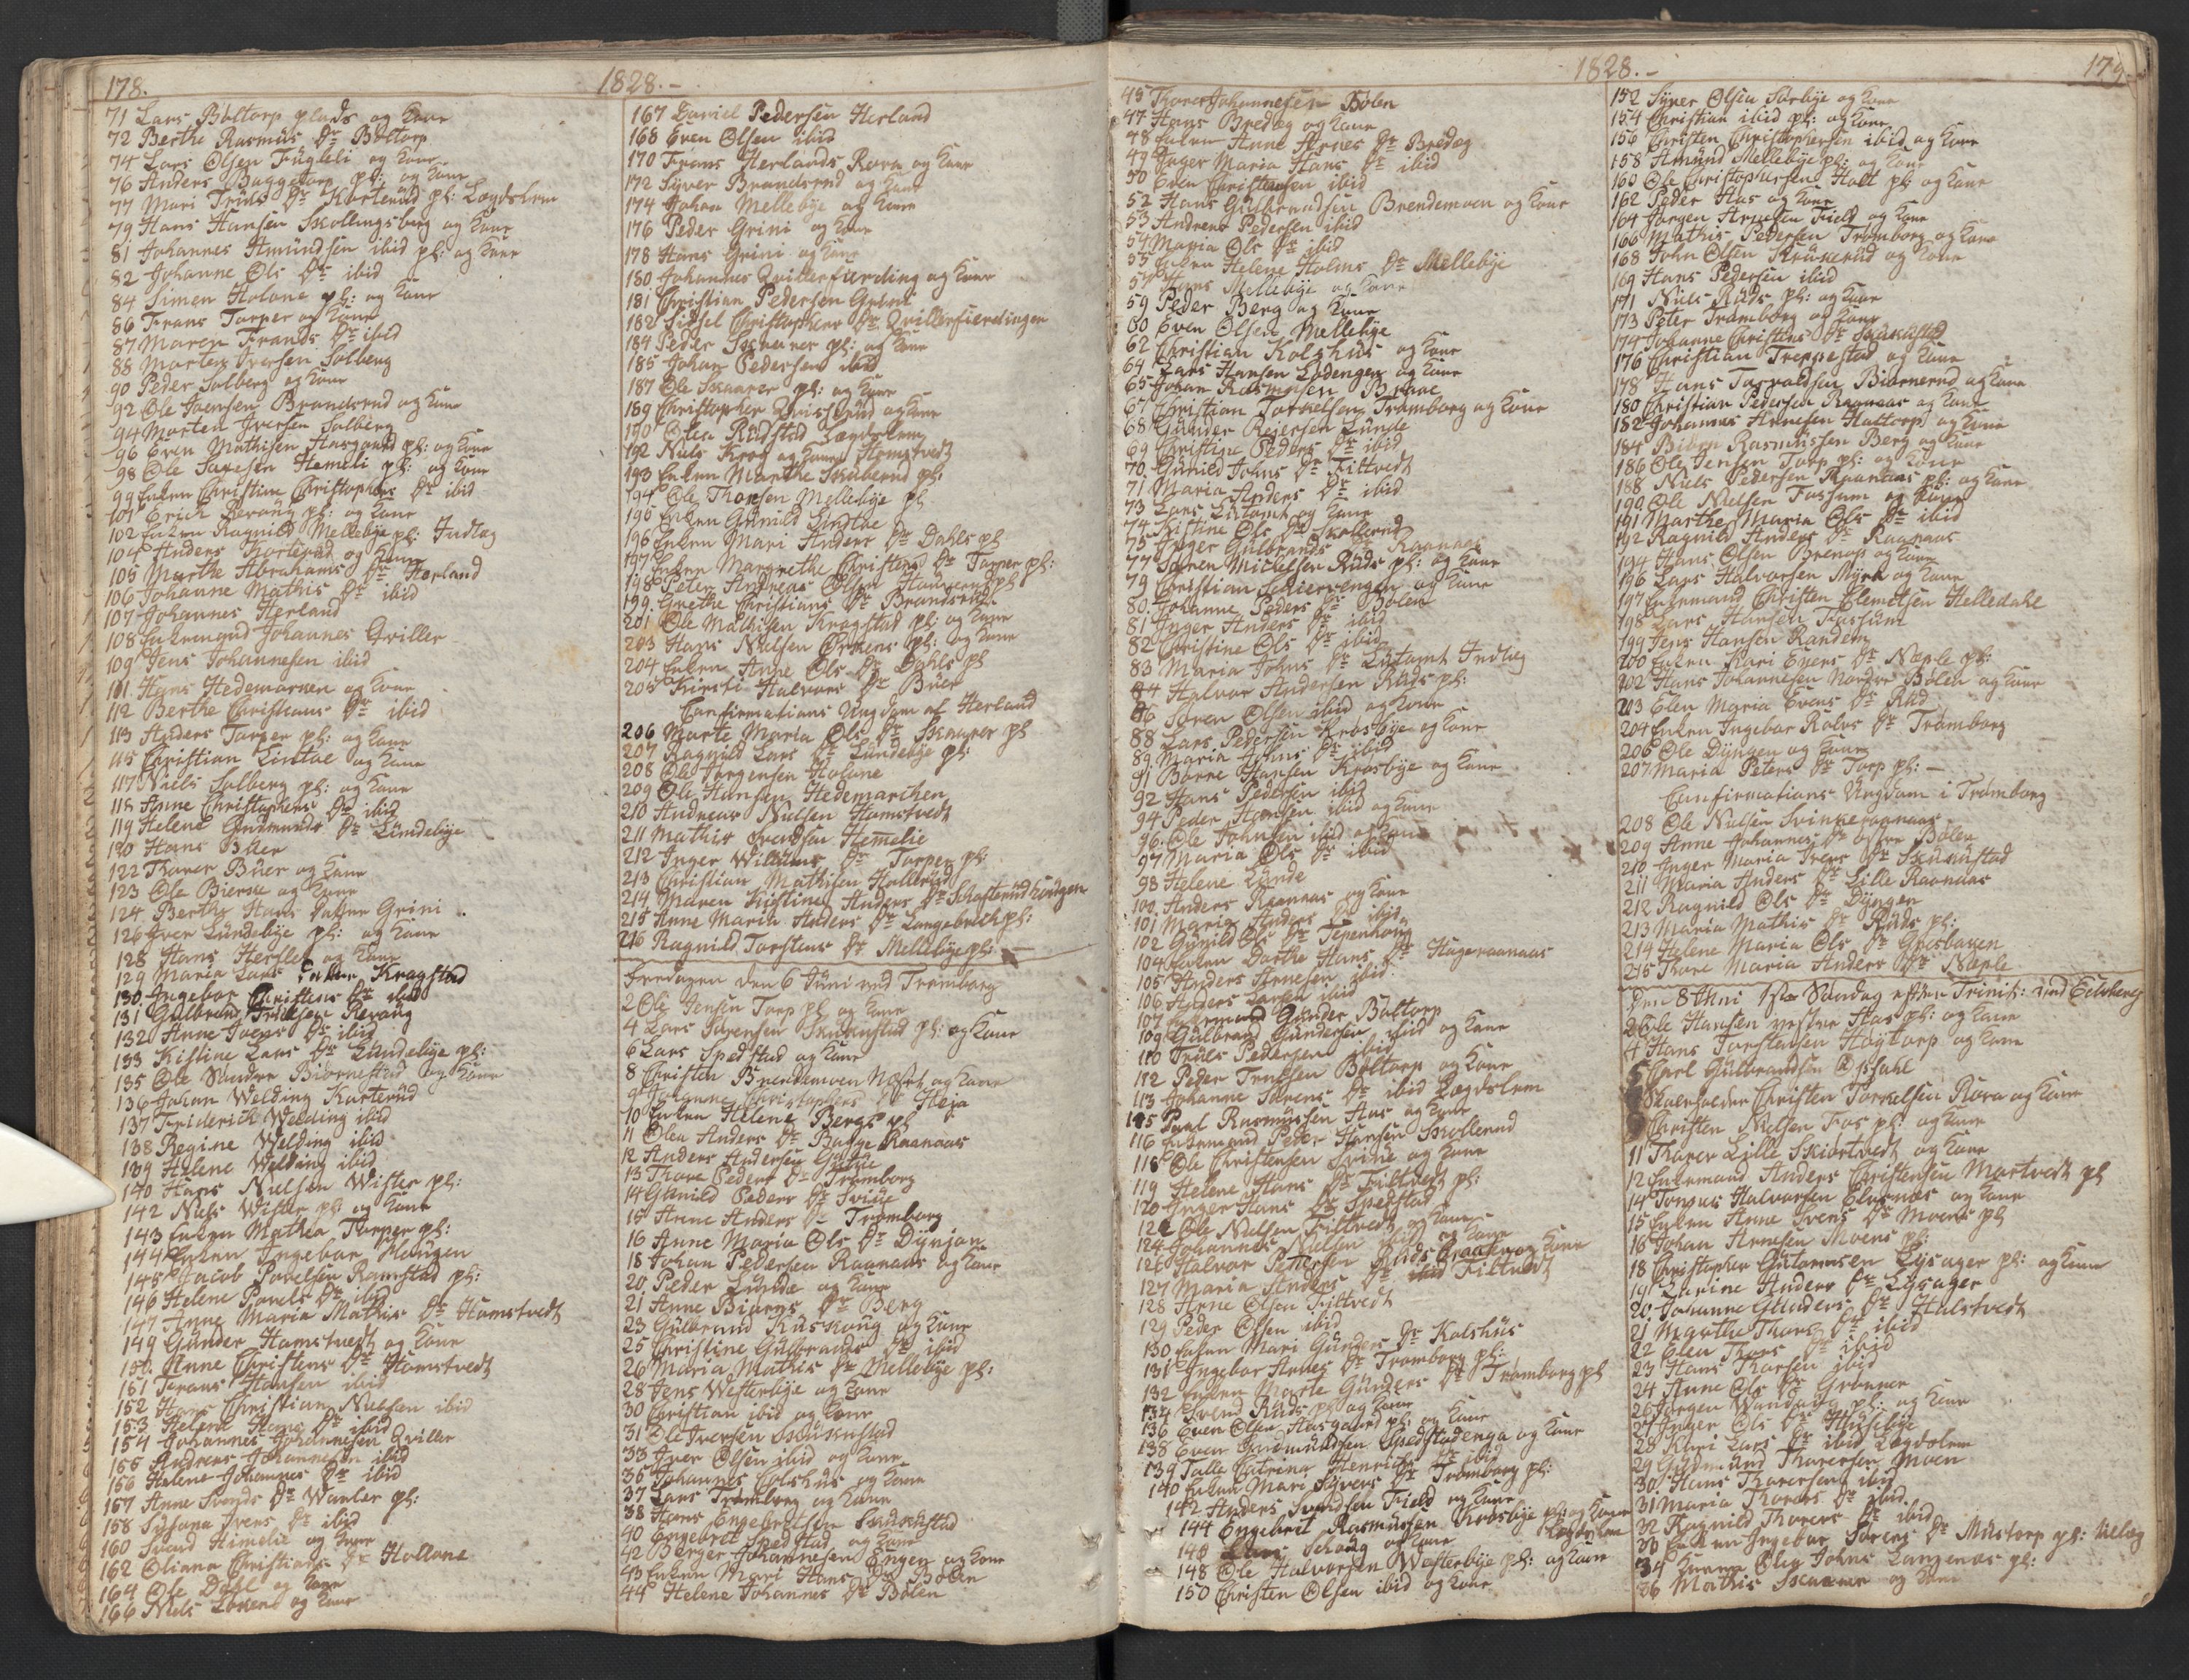 178.
1828.-
71 Lars Boltorp plads og Kone
72 Berthe Rasmus Dr Boltorp
74 Lars Olsen Fugleli og Kone
76 Anders Buggetorp pl: og Kone
77 Mari Truls Dr Karterud pl: Løgdslem
79 Hans Hansen Skollingsberg og Kone
81 Johannes Amundsen ibid pl: og Kone
82 Johanne Ols Dr ibid
84 Simen Holane pl: og Kone
86 Frans Torper og Kone
87 Maren Frands Dr ibid
88 Morten Iversen Solberg
90 Peder Solberg og Kone
92 Ole Joensen Brandsrud og Kone
94 Morten Iversen Solberg
96 Even Mathisen Aasgaard pl: og Kone
98 Ole Hemeli pl: og Kone
99 Enken Christine Christophers Dr ibid
101 Erich Revaug pl: og Kone
102 Enken Ragnild Mellebye pl: Indlæg
104 Anders Korterud og Kone
105 Marthe Abrahams Dr Herland
106 Johanne Mathis Dr ibid
107 Johannes Herland
108 Enkemand Johannes Qviller
109 Jens Johannesen ibid
111. Hans Hedemarken og Kone
112 Berthe Christians Dr ibid
113 Anders Torper pl: og Kone
115 Christian Lintoe og Kone
117 Niels Solberg pl: og Kone
118 Anne Christophers Dr ibid
119 Helene Gudmunds Dr Lundebye
120 Hans Buer
122 Thorer Buer og Kone
123 Ole Bierke og Kone
124 Berthe Hans Datter Grini
126 Iver Lundebye pl: og Kone
128 Hans Hersleb og Kone
129 Maria Lars Datter Kragstad
130 Ingebor Christens Dr ibid
131 Gulbrand Ericksen Revaug
132 Anne Joens Dr ibid
133 Kistine Lars Dr Lundebye pl:
135 Ole Søndre Biørnestad og Kone
136 Johan Welding Karterud
137 Friderich Welding ibid
138 Regine Welding ibid
139 Helene Welding ibid
140 Hans Nielsen Wister pl:
142 Niels Wister pl: og Kone
143 Enken Mathea Torper pl:
144 Enken Ingebor Haugen
145 Jacob Povelsen Ramstad pl:
146 Helene Povels Dr ibid
147 Anne Maria Mathis Dr Hamstvedt
149 Gunder Hamstvedt og Kone
150. Anne Christens Dr Hamstvedt
151 Frans Hansen ibid
152 Hans Christian Nielsen ibid
153 Helene Hans Dr ibid
154 Johannes Johannesen Qviller
155 Andreas Johannesen ibid
156 Helene Johannes Dr ibid
157 Anne Svends Dr Wanler pl:
158 Susana Ivers Dr ibid
160 Svend Himelie og Kone
162 Oliana Christians Dr Hollane
164 Ole Dahl og Kone
166 Niels Løkene og Kone
167 Daniel Pedersen Herland
168 Even Olsen ibid
170 Frans Herlands Røra og Kone
172 Syver Brandsrud og Kone
174 Johan Mellebye og Kone
176 Peder Grini og Kone
178 Hans Grini og Kone
180 Johannes Qvillerfierding og Kone
181 Christian Pedersen Grini
182 Sidsel Christophers Dr Qvillerfierdingen
184 Peder Skaarer pl: og Kone
185 Johan Pedersen ibid
187 Ole Skaarer pl: og Kone
189 Christopher Qvislerud og Kone
190 Olea Rudstad Lægdslem
192 Niels Krog og Kone Hamstvedt
193 Enken Marthe Skuberud pl:
194 Ole Thorsen Mellebye pl
195 Enken Gunild Lindtoe
196 Enken Mari Anders Dr Dahls pl
197 Enken Margrethe Christens Dr Torper pl:
198 Peter Andreas Olsen pl
199. Grethe Christians Dr Brandsrud
201 Ole Mathisen Kragstad pl: og Kone
203 Hans Nielsen Ørkens pl: og Kone
204 Enken Anne Ols Dr Dahls pl
205 Kirsti Halvors Dr Buer
Confirmations Ungdom af Herland
206 Marte Maria Ols Dr Skaarer pl
207 Ragnild Lars Dr Lundebye pl:
208 Ole Jørgensen Holone
209 Ole Hansen Hedemarchen
210 Andreas Nielsen Hamstvedt
211 Mathis Svendsen Hemelie
212 Inger Willums Dr Torper pl:
213 Christian Mathisen Hallerud
214 Maren Kistine Anders Dr Schofterud haugen
215 Anne Maria Anders Dr Langebrech pl:
216 Ragnild Torstens Dr Mellebye pl: -
Fredagen den 6 Juni ved Trømborg
2 Ole Jensen Torp pl og Kone
4 Lars Sørensen Skuknstad pl: og Kone
6 Lars Spedstad og Kone
8 Christen Brendemoen Næset og Kone
9 Johanne Christophers Dr Heja
10 Enken Helene Bergs pl
11 Olea Anders Dr Bøige Raanaas
12 Anders Andersen Guslie
13 Thore Peders Dr Trømborg
14 Gunild Peders Dr Sviie
15 Anne Anders Dr Trømborg
16 Anne Maria Ols Dr Dynjan
18 Johan Pedersen Raanaas og Kone
20. Peder Lunde og Kone
21 Anne Biørns Dr Berg
23 Gulbrand Kuskoug og Kone
25 Christine Gulbrands Dr ibid
26 Maria Mathis Dr Mellebye pl:
28 Jens Westerbye og Kone
30 Christian ibid og Kone
31 Ole Iversen Skukustad
33 Iver Olsen ibid og Kone
35 Johannes Colshus og Kone
37 Lars Trømborg og Kone
38 Hans Engebretsen Skuckestad
40 Engebret Spedstad og Kone
42 Berger Johannesen Engen og Kone
43 Enken Mari Hans Dr Bølen
44 Helene Johannes Dr Bølen
1828.-
179
45 Thorer Johannesen Bølen
47 Hans Bredeg og Kone
48 Enken Anne Arnes Dr Bredeg
49 Inger Maria Hans Dr ibid
50 Even Christensen ibid
52 Hans Gulbrandsen Brendemoen og Kone
53 Andreas Pedersen ibid
54 Maria Ols Dr ibid
55 Enken Helene Holms Dr Mellebye
57 Hans Mellebye og Kone
59 Peder Berg og Kone
60 Even Olsen Mellebye
62 Christian Kolshus og Kone
64 Lars Hansen Lødengen og Kone
65 Johan Rasmusen Braae
67 Christian Torkelsen Trømborg og Kone
68 Gunder Reiersen Lunde
69 Christine Peders Dr ibid
70. Gunild Johns Dr Fittvedt
71 Maria Anders Dr ibid
73 Lars Lutomt og Kone
74 Kistine Ols Dr Skollerud
75 Inger Gulbrands Dr Raanaas
77 Søren Michelsen Ruds pl: og Kone
79 Christian Schiervengen og Kone
80. Johanne Peders Dr Bølen
81 Inger Anders Dr ibid
82 Christine Ols Dr ibid
83 Maria Johns Dr Lutomt Indlæg
84 Halvor Andersen Ruds pl:
86 Søren Olsen ibid og Kone
88 Lars Pedersen Krosbye og Kone
89. Maria Johns Dr ibid
91 Børre Hansen Krosbye og Kone
92 Hans Pedersen ibid
94 Peder Hansen ibid og Kone
96. Ole Johnsen ibid og Kone
97 Maria Ols Dr ibid
98 Helene Lunde
100. Anders Raanaas og Kone
101 Maria Anders Dr ibid
102 Gunild Ols Dr Tepenhoug
104 Enken Dorthe Hans Dr Hageraanaas
105 Anders Arnesen ibid
106 Anders Larsen ibid
107 Enkemand Gunder Boltorp
109 Gulbrand Gundersen ibid og Kone
110 Truls Pedersen ibid
112 Peder Trulsen Boltorp og Kone
113 Johanne Sørens Dr ibid Lægdslem
115 Poul Rasmussen Aas og Kone
116 Enkemand Peder Hansen Skollerud
118 Ole Christensen Sviie og Kone
119 Helene Hans Dr Fittvedt pl:
120 Inger Hans Dr Spedstad
122 Ole Nielsen Fittvedt og Kone
124 Johannes Nielsen ibid og Kone
126 Halvor Pettersen Ruds Braaten og Kone
127 Maria Anders Dr Fittvedt
128 Arne Olsen Fittvedt
129 Peder Olsen ibid
130 Enken Mari Gunders Dr Kolshus
131 Ingebor Arnes Dr Trømborg pl:
132 Enken Marte Gunders Dr Trømborg pl
134 Svend Ruds pl og Kone
136 Even Olsen Aasgaard pl: og Kone
138 Even Gudmundsen Spedstadenga og Kone
139 Talle Catrina Henrichs Dr ibid
140 Enken Mari Syvers Dr Trømborg pl:
142 Anders Svendsen Field og Kone
144 Engebret Rasmussen Krosbye pl: og Kone
Lægdslem
146 Schoug og Kone
148 Ole Halvorsen Westerbye pl: og Kone
150 Christen Olsen ibid og Kone
152 Syver Olsen Sørbye og Kone
154 Christian ibid pl: og Kone
156 Christen Christophersen ibid og Kone
158 Amund Mellebye pl: og Kone
160 Ole Christophersen Holt pl: og Kone
162 Peder Aas og Kone
164 Jørgen Arnesen Field og Kone
166 Mathis Pedersen Trømborg og Kone
168 John Olsen Kruserud og Kone
169 Hans Pedersen ibid
171 Niels Ruds pl: og Kone
173 Peter Trømborg og Kone
174 Johanne Christens Dr Skukustad
176 Christian Treppestad og Kone
178 Hans Torvaldsen Biørnerud og Kone
180 Christian Pedersen Raanaas og Kone
182 Johannes Arnesen Haltorp og Kone
184 Biørn Rasmussen Berg og Kone
186 Ole Jensen Torp pl: og Kone
188 Niels Pedersen Raanaas pl: og Kone
190. Ole Nielsen Fossum og Kone
191 Marthe Maria Ols Dr ibid
192 Ragnild Anders Dr Raanaas
194 Hans Olsen Brenop og Kone
196 Lars Halvorsen Myra og Kone
197 Enkemand Christen Clemetsen Helledahl
198 Lars Hansen Fossum
199 Jens Hansen Randem
200 Enken Kari Evens Dr Næple pl:
202 Hans Johannesen Nordre Bølen og Kone
203 Elen Maria Evens Dr Rud
204 Enken Ingebor Rolvs Dr Trømborg
206 Ole Dyngen og Kone
207 Maria Peters Dr Torp pl: -
Confirmations Ungdom i Trømborg
208 Ole Nielsen Svinkeraanaas
209 Anne Johannes Dr østre Bølen
210 Inger Maria Ivers Dr Skukustad
211 Maria Anders Dr Lille Raanaas
212 Ragnild Ols Dr Dyngen
213 Maria Mathis Dr Ruds pl:
214 Helene Maria Ols Dr Griisbacken
215 Thore Maria Anders Dr Næple
Den 8 Juni 1ste Søndag efter Trinit: ved Eidsberg
2 Ole Hansen vestre Aas pl: og Kone
4 Hans Torstensen Høytorp og Kone
5 Carl Gulbrandsen Opsahl
Skoeholder Christen Torkelsen Rora og Kone
Christen Nielsen Fos pl: og Kone
11 Thorer Lille Skiørtvedt og Kone
12 Enkemand Anders Christensen Mortvedt pl
14 Tonnes Halvorsen Elvenæs og Kone
15 Enken Anne Svens Dr Moens pl
16 Johan Arnesen Moens pl:
18 Christopher Guttormsen Lysager pl: og Kone
19 Karine Anders Dr Lysager
20. Johanne Gunders Dr Hulstvedt
21 Marthe Thors Dr ibid
22 Elen Thors Dr ibid
23 Hans Thorsen ibid
24 Anne Ols Dr Grønner
26 Jørgen Wandugg pl: og Kone
27 Inger Ols Dr Huseby
28 Kari Lars Dr ibid Lægdslem
29 Gudmund Thorersen Moen
30. Hans Thorersen ibid
31 Maria Thorers Dr ibid
32 Ragnild Thorers Dr ibid
33 Enken Ingebor Sørens Dr Mustorp pl: Uslæg
34 Konen Olea Johns Langenæs pl:
36 Mathis Skaarer og Kone